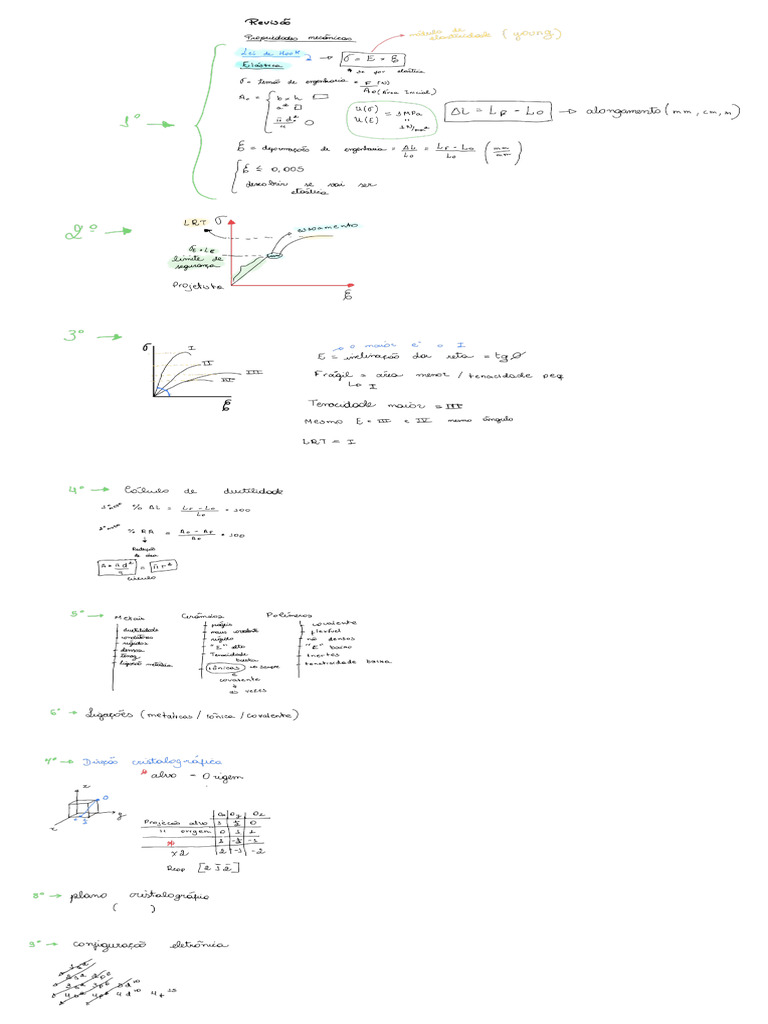 Revisão
Propriedades mecânicas
módulo de elasticidade (young)
Lei de Hook
σ = E * ε
Elástica
* se for elástica
σ = tensão de engenharia = F (N) / A₀ (Área Inicial)
A₀ = { b * h
a²
π d² / 4
U(σ) U(E) = 1 MPa = 1 N/mm²
ΔL = LF - L0 → alongamento (mm, cm, m)
1º →
ε = deformação de engenharia = ΔL / L0 = LF - L0 / L0 (mm / mm)
ε ≤ 0,005
descobrir se vai ser elástica
2º →
LRT
σ
escoamento
limite de segurança
Projetista
ε
3º →
σ
I
II
III
ε
→ o maior é o I
E = inclinação da reta = tg θ
Frágil = área menor / tenacidade peq
↳ I
Tenacidade maior = III
Mesmo E = III e IV mesmo ângulo
LRT = I
4º → Cálculo de ductilidade
% ΔL = LF - L0 / L0 * 100
% RA = A0 - AF / A0 * 100
Redução de área
A = π d² / 4 = π r²
círculo
5º →
Metais
ductilidade
condutores
rígidos
densos
tenaz
ligação metálica
Cerâmicos
frágis
mais covalente
rígido
"E" alto
Tenacidade baixa
iônicas → sempre
e
covalente
↓
as vezes
Polímeros
covalente
flexível
não densos
"E" baixo
Inertes
tenatividade baixa
6º → Ligações (metálicas / iônica / covalente)
7º → Direção cristalográfica
* alvo - Origem
z
y
x
Projeção alvo 1 ½ 0
" origem 0 1 1
* 1 -½ -1
x2 2 -1 -2
Resp [2 1̄ 2̄]
8º → plano cristalográfico
( )
9º → configuração eletrônica
1s²
2s² 2p⁶
3s² 3p⁶ 3d¹⁰
4s² 4p⁶ 4d¹⁰ 4f